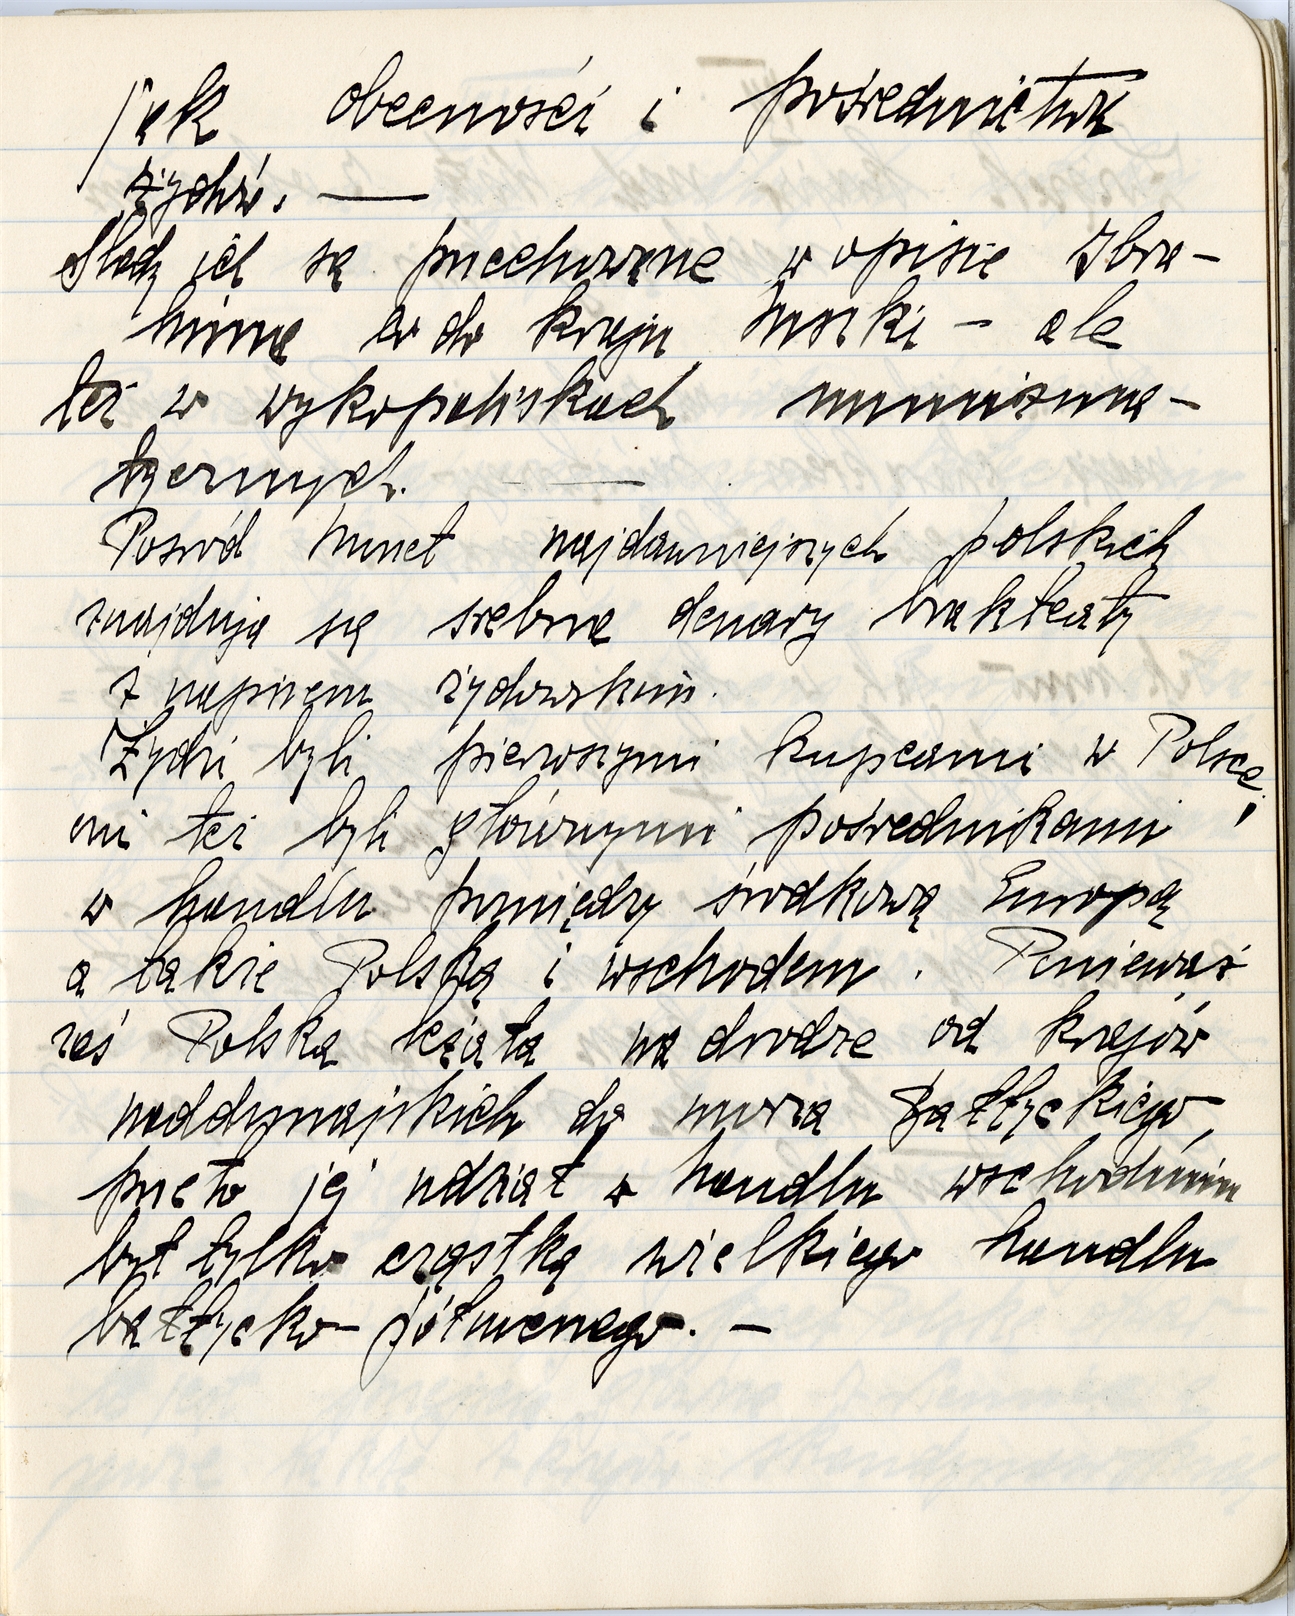 jak obecności i pośrednictwa
żydów. —
Ślady ich są przechowane w opisie Ibra-
hima co do kraju Mszki – ale
też w wykopaliskach numizma-
tycznych. —
Pośród monet najdawniejszych polskich
znajdują się srebrne denary brakteaty
z napisem żydowskim.
Żydzi byli pierwszymi kupcami w Polsce,
oni też byli głównymi pośrednikami
w handlu pomiędzy środkową Europą
a także Polską i wschodem. Ponieważ
zaś Polska leżała na drodze od krajów
naddunajskich do morza Bałtyckiego,
przeto jej udział w handlu wschodnim
był tylko cząstką wielkiego handlu
bałtycko-północnego. —